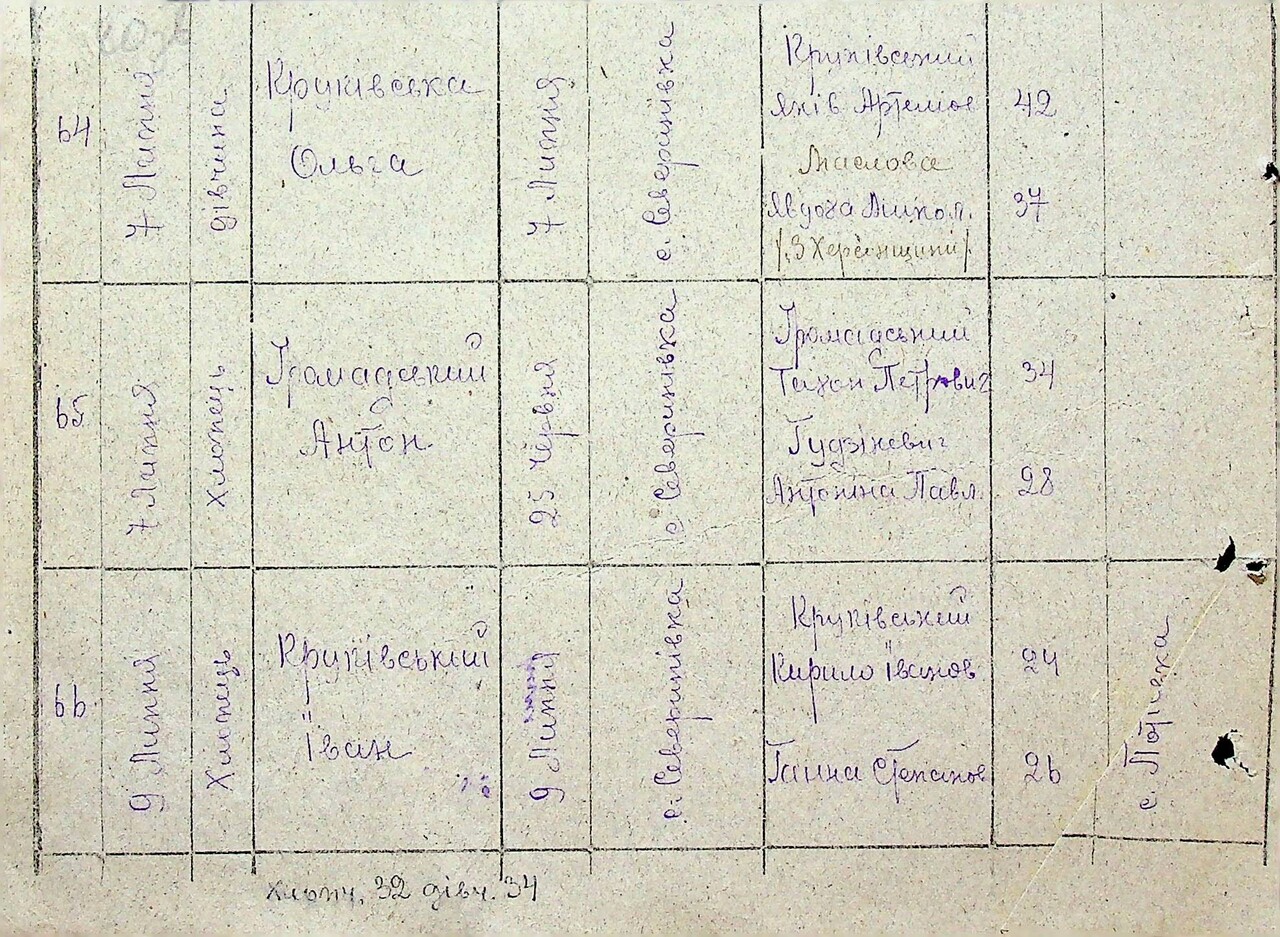 64
7 Липня
дівчина
Круківська
Ольга
7 Липня
с. Северинівка
Круківський
Яків Артемієв
42
Маслова
Явдоха Микол.
37
/З Херсонщини/
65
7 Липня
Хлопець
Громадський
Антон
25 Червня
с. Северинівка
Громадський
Тихон Петрович
34
Гудзікевич
Антоніна Павл.
28
66
9 Липня
Хлопець
Круківський
Їван
9 Липня
с. Северинівка
Круківський
Кирило Їванов
24
Ганна Степанов
26
с. Потіївка
хлопч. 32 дівч. 34